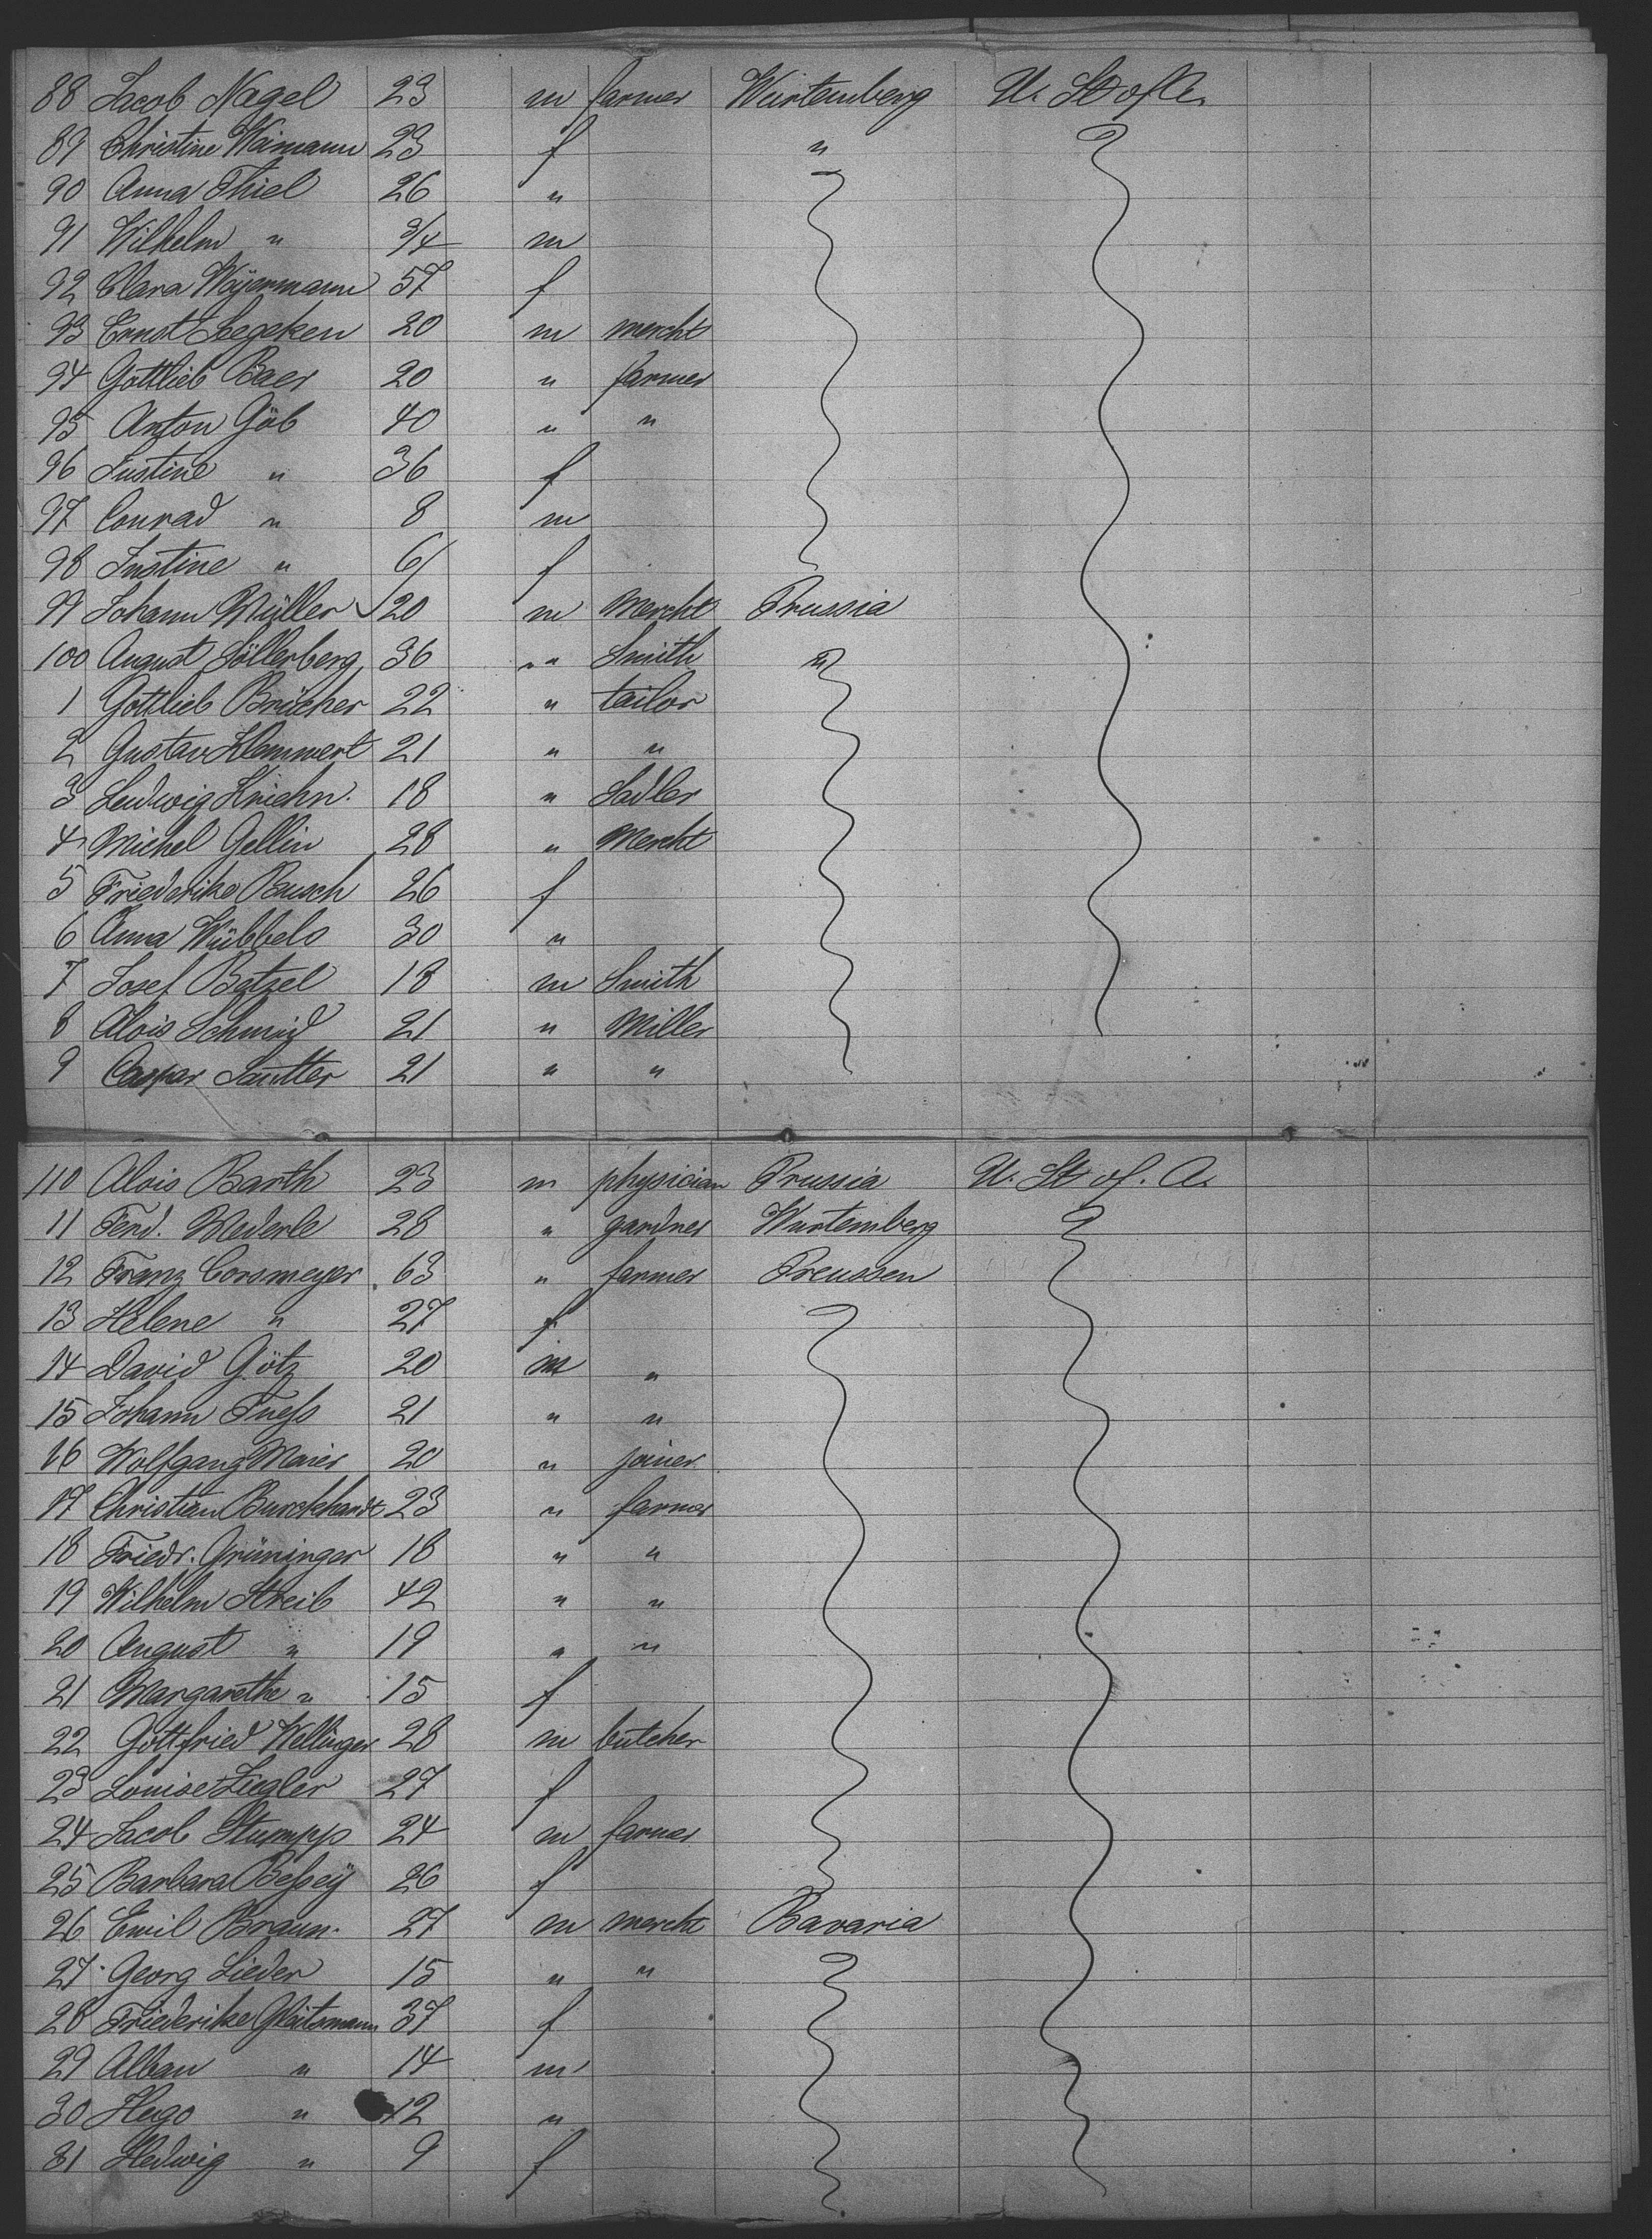 88 Jacob Nagel 23 m farmer Würtemberg U. St of A.
89 Christine Weimann 23 f "
90 Anna Thiel 26 "
91 Wilhelm " 3/4 m
92 Clara Weyermann 57 f
93 Ernst Seegeken 20 m mercht
94 Gottlieb Baer 20 " farmer
95 Anton Göb 40 " "
96 Justine " 36 f
97 Conrad " 8 m
98 Justine " 6 f
99 Johann Müller 20 m Mercht Prussia
100 August Söllerberg 36 " Smith "
1 Gottlieb Brücher 22 " tailor
2 Gustav Klemmert 21 " "
3 Ludwig Kriehn. 18 " Sadler
4 Michel Gellin 28 " Mercht
5 Friederike Bausch 26 f
6 Anna Wübbels 30 "
7 Josef Betzel 18 m Smith
8 Alois Schmid 21 " Miller
9 Caspar Sautter 21 " "
110 Alois Barth 23 m physician Prussia U. St of. A.
11 Ferd. Mederle 28 " gardner Würtemberg
12 Franz Corsmeyer 63 " farmer Preussen
13 Helene " 27 f
14 David Götz 20 m "
15 Johann Fuess 21 " "
16 Wolfgang Maier 20 " joiner
17 Christian Burckhardt 23 " farmer
18 Friedr. Grüninger 18 " "
19 Wilhelm Streib 42 " "
20 August " 19 " "
21 Margarethe " 15 f
22 Gottfried Wellinger 28 m butcher
23 Louise Ziegler 27 f
24 Jacob Stumpp 24 m farmer
25 Barbara Bessey 26 f
26 Emil Braun. 27 m mercht Bavaria
27 Georg Lieder 15 " "
28 Friederike Gleitsmann 37 f
29 Alban " 14 m
30 Hugo " 12 "
31 Hedwig " 9 f